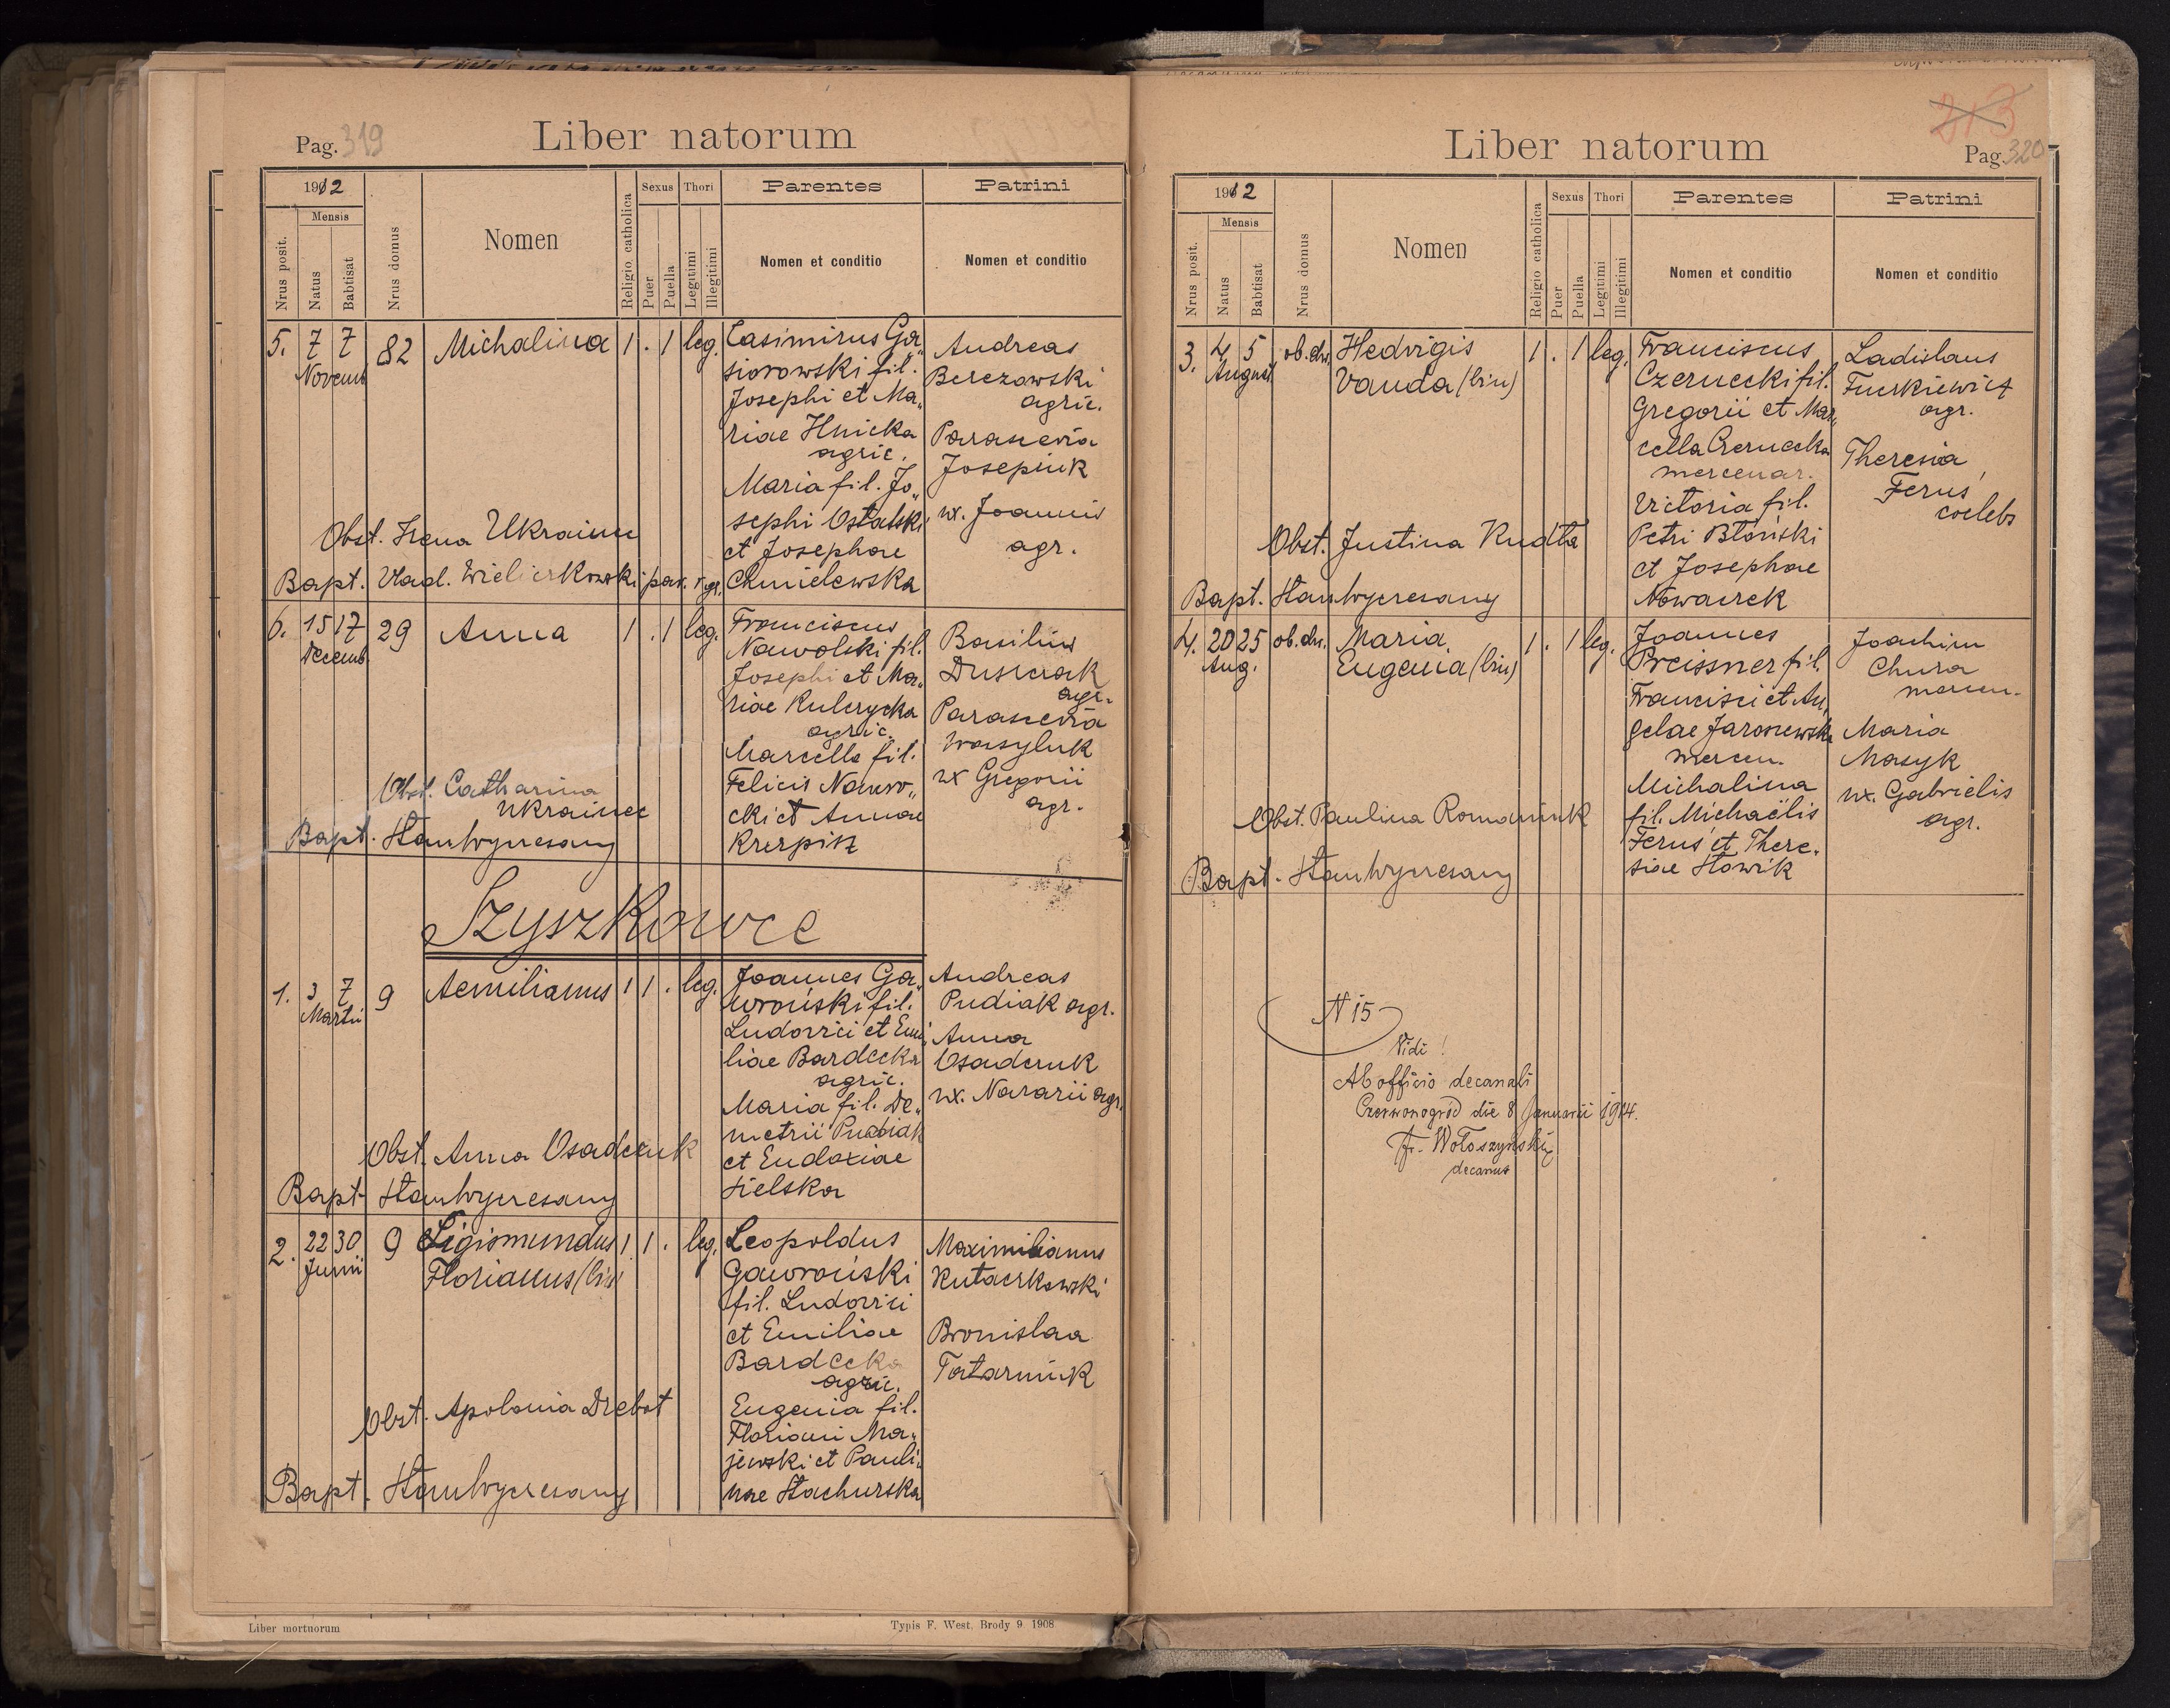 Pag. 319
Liber natorum
1912
Mensis
Nrus posit.
Natus
Babtisat
Nrus domus
Nomen
Religio catholica
Sexus
Puer
Puella
Thori
Legitimi
Illegitimi
Parentes
Nomen et conditio
Patrini
Nomen et conditio
5. 7 7 82 Michalina 1 . 1 leg.
Novemb
Casimirus Ga„
siorowski fil.
Josephi et Ma„
riae Hnicka
agric.
Maria fil. Jo„
sephi Ostalski
et Josephae
Chmielewska
Andreas
Berezowski
agric.
Parascevia
Josepiuk
ux. Joannis
agr.
Obst. Irena Ukrainec
Bapt. Vlad. Wieliczkowski par. vgr.
6. 15 17 29 Anna 1 . 1 leg.
Decemb
Franciscus
Nawolski fil.
Josephi et Ma„
riae Kulczycka
agric.
Marcella fil.
Felicis Nawro„
cki et Annae
Krzepisz
Basilius
Duszczak
agr.
Parascevia
Wasyluk
ux Gregorii
agr.
Obst. Catharina
Ukrainec
Bapt. Stan Wyczesany
Szyszkowce
1. 3 7 9 Aemilianus 1 1 . leg.
Martii
Joannes Ga„
wroński fil.
Ludovici et Emi„
liae Bardecka
agric.
Maria fil. De„
metrii Pudiak
et Eudoxiae
Sielska
Andreas
Pudiak agr.
Anna
Osadczuk
ux. Nazarii agr.
Obst. Anna Osadczuk
Bapt. Stan Wyczesany
2. 22 30 9 Sigismundus 1 1 . leg.
Junii
Florianus (bin)
Leopoldus
Gawroński
fil. Ludovici
et Emiliae
Bardecka
agric.
Eugenia fil.
Floriani Ma„
jewski et Pauli„
nae Stachurska
Maximilianus
Kutaczkowski
Bronislaa
Tatarniuk
Obst. Apolonia Drebot
Bapt. Stan Wyczesany
Liber mortuorum
Typis F. West. Brody 9 1908
213
Liber natorum
Pag. 320
1912
Mensis
Nrus posit.
Natus
Babtisat
Nrus domus
Nomen
Religio catholica
Sexus
Puer
Puella
Thori
Legitimi
Illegitimi
Parentes
Nomen et conditio
Patrini
Nomen et conditio
3. 4 5 ob. dw. Hedvigis 1 . 1 leg.
August
Vanda (bin)
Franciscus
Czernecki fil.
Gregorii et Mar„
cella Czernecka
mercenar.
Victoria fil.
Petri Błoński
et Josephae
Nowaczek
Ladislaus
Furkiewicz
agr.
Theresia
Feruś
coelebs
Obst. Justina Kudła
Bapt. Stan Wyczesany
4. 20 25 ob. dw. Maria 1 . 1 leg.
Aug.
Eugenia (bin)
Joannes
Preissner fil.
Francisci et An„
gelae Jaroszewska
mercen.
Michalina
fil. Michaëlis
Feruś et There„
siae Słowik
Joachim
Chura
mercen.
Maria
Masyk
ux. Gabrielis
agr.
Obst. Paulina Romaniuk
Bapt. Stan Wyczesany
N 15
Vidi!
Ab officio decanali
Czerwonogród die 8 Januarii 1914.
Fr. Wołoszyński
decanus